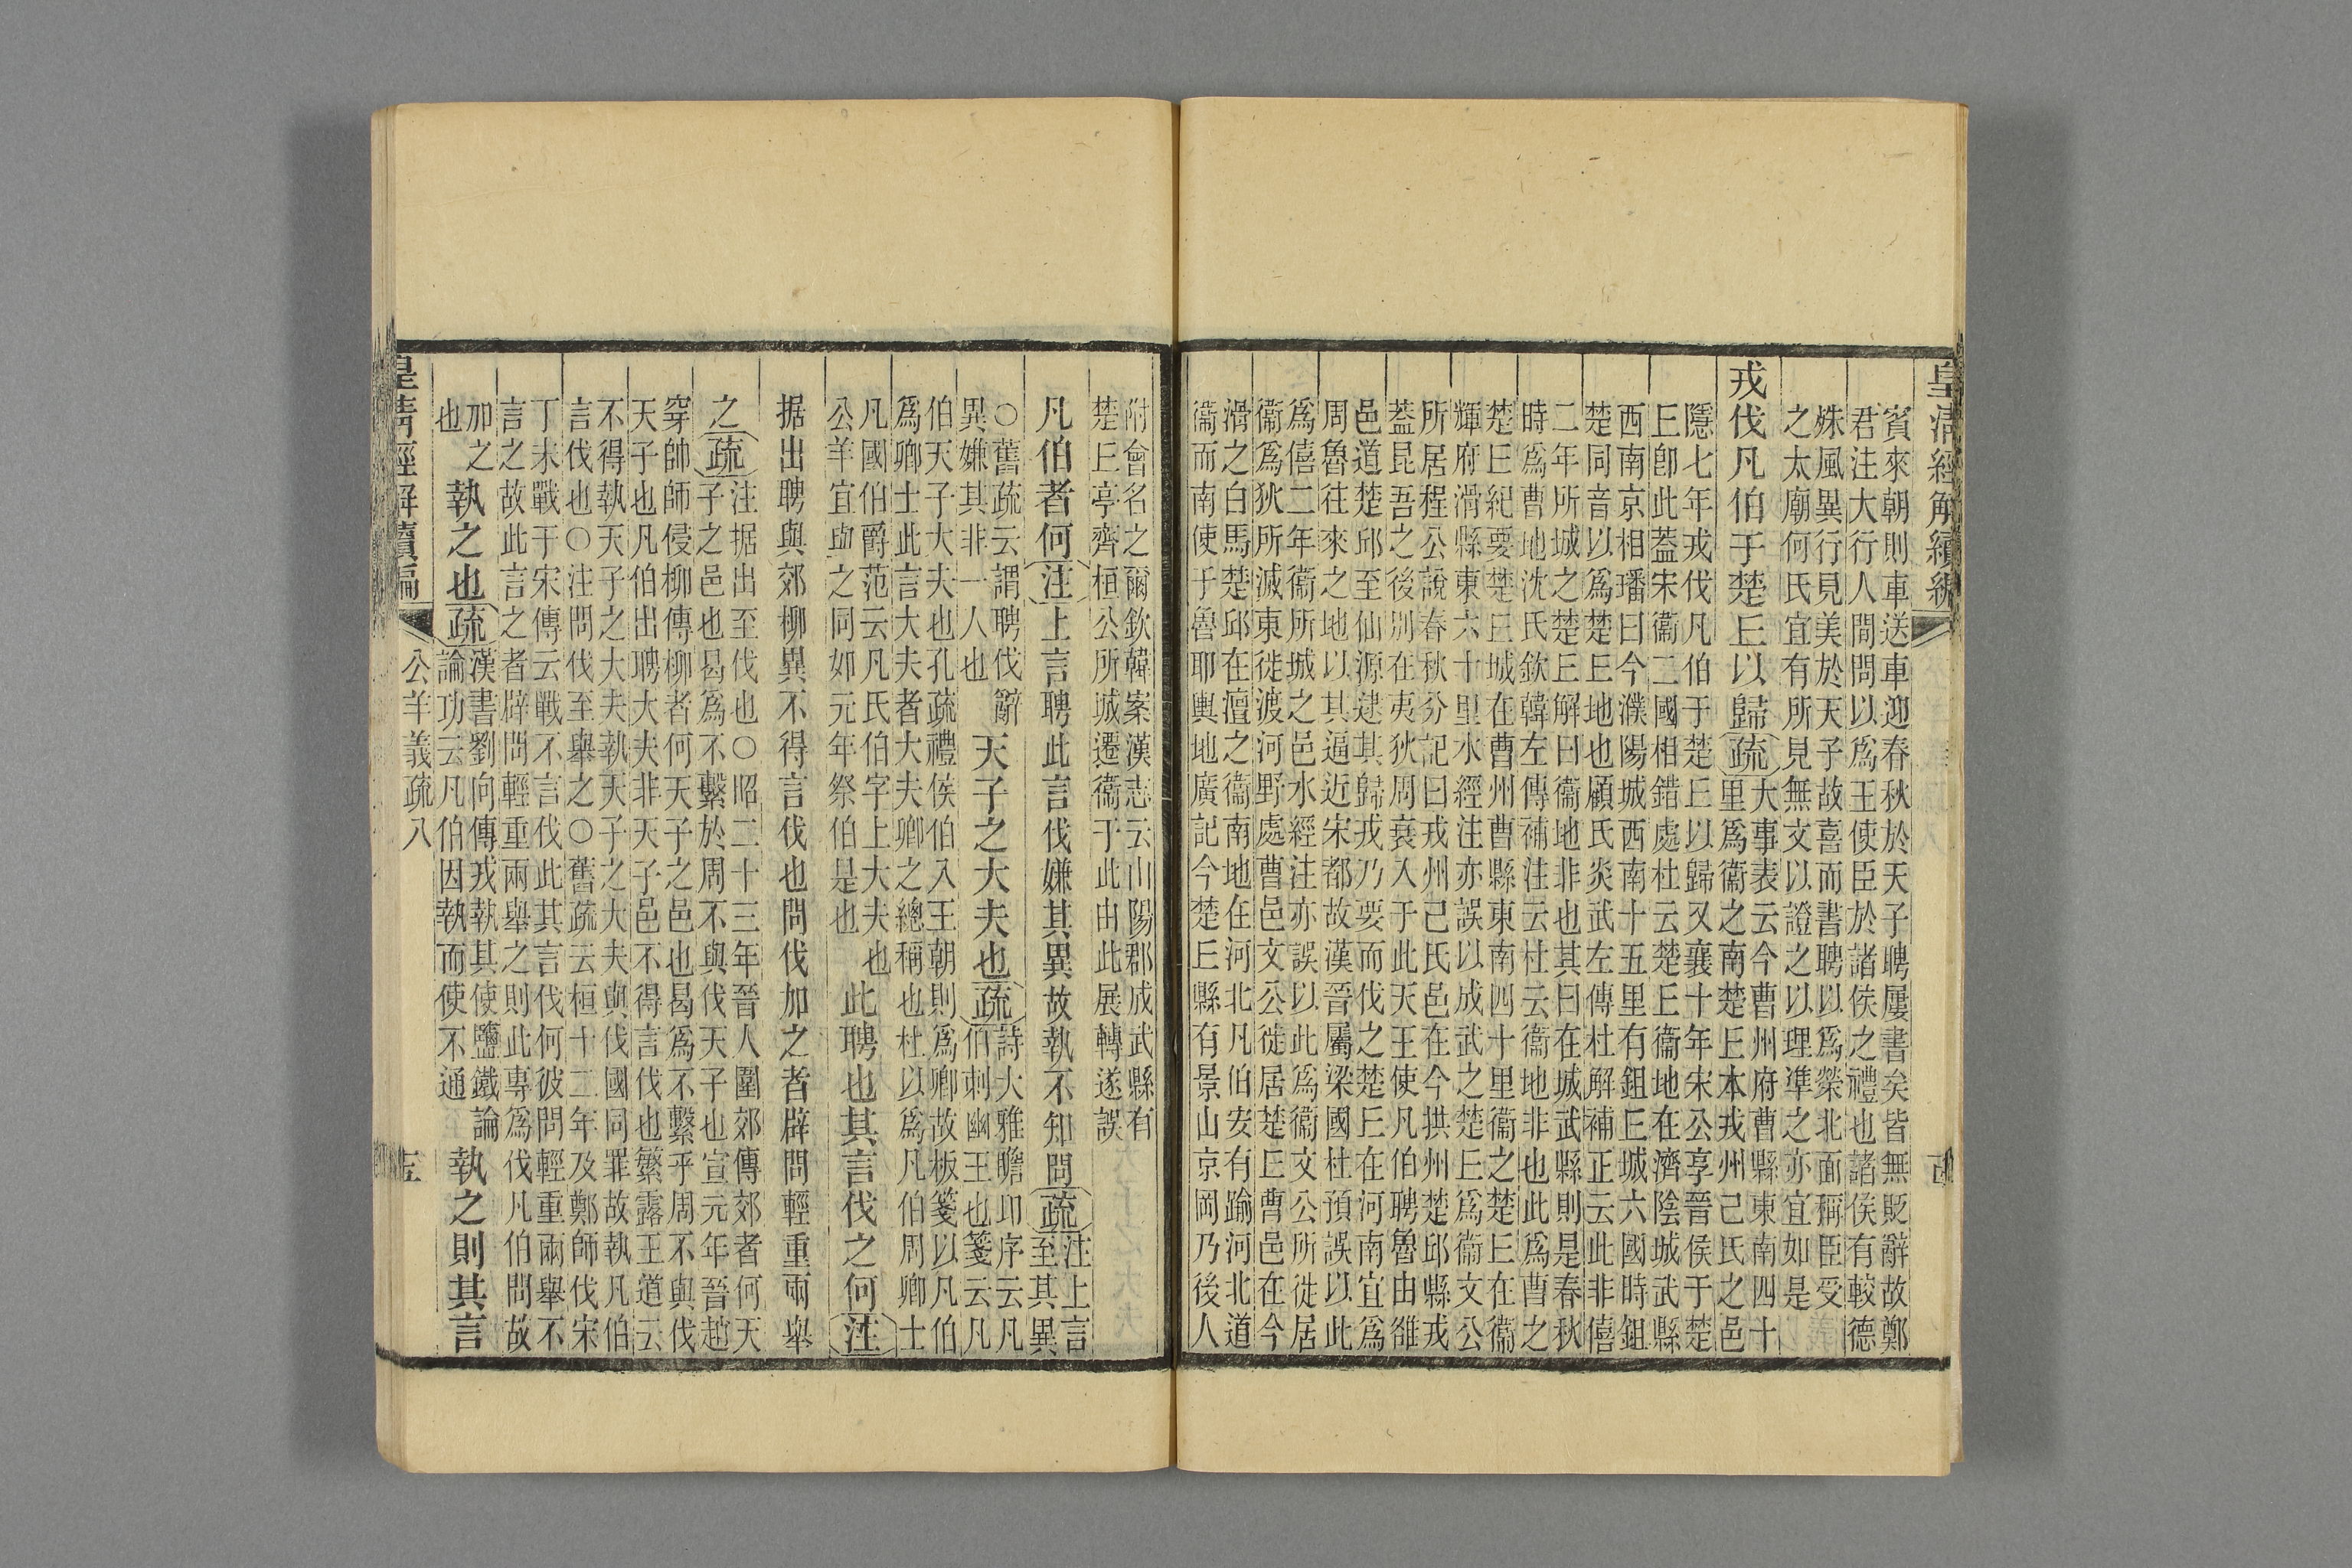 皇清經解續編
賓來朝則車送車迎春秋於天子聘屢書矣皆無貶辭故鄭
君注大行人閒問以爲王使臣於諸侯之禮也諸侯有較德
姝風異行見美於天子故喜而書聘以爲榮北面稱臣受
之太廟何氏宜有所見無文以證之以理準之亦宜如是
戎伐凡伯于楚丘以歸疏
大事表云今曹州府曹縣東南四十
里爲衞之南楚丘本戎州己氏之邑
隱七年戎伐凡伯于楚丘以歸又襄十年宋公享晉侯于楚
丘卽此蓋宋衞二國相錯處杜云楚丘衞地在濟陰城武縣
西南京相璠曰今濮陽城西南十五里有鉏丘城六國時鉏
楚同音以爲楚丘地也顧氏炎武左傳杜解補正云此非僖
二年所城之楚丘解曰衞地非也其曰在城武縣則是春秋
時爲曹地沈氏欽韓左傳補注云杜云衞地非也此爲曹之
楚丘紀要楚丘城在曹州曹縣東南四十里衞之楚丘在衞
輝府滑縣東六十里水經注亦誤以成武之楚丘爲衞文公
所居程公說春秋分記曰戎州己氏邑在今拱州楚邱縣戎
蓋昆吾之後別在夷狄周衰入于此天王使凡伯聘魯由雒
邑道楚邱至仙源建其歸戎乃要而伐之楚丘在河南宜爲
周魯往來之地以其逼近宋都故漢晉屬梁國杜預誤以此
爲僖二年衞所城之邑水經注亦誤以此爲衞文公所徙居
衞爲狄所滅東徙渡河野處曹邑文公徙居楚丘曹邑在今
滑之白馬楚邱在澶之衞南地在河北凡伯安有踰河北道
衞而南使于魯耶輿地廣記今楚丘縣有景山京岡乃後人
附會名之爾欽韓案漢志云山陽郡成武縣有
楚丘亭齊桓公所城遷衞于此由此展轉遂誤
凡伯者何注上言聘此言伐嫌其異故執不知問疏
注上言
至其異
○舊疏云謂聘伐辭
異嫌其非一人也
天子之大夫也疏
詩大雅瞻卬序云凡
伯刺幽王也箋云凡
伯天子大夫也孔疏禮侯伯入王朝則爲卿故板箋以凡伯
爲卿士此言大夫者大夫卿之總稱也杜以爲凡伯周卿士
凡國伯爵范云凡氏伯字上大夫也
公羊宜與之同如元年祭伯是也
此聘也其言伐之何注
据出聘與郊柳異不得言伐也問伐加之者辟問輕重兩舉
之疏
注据出至伐也○昭二十三年晉人圍郊傳郊者何天
子之邑也曷爲不繫於周不與伐天子也宣元年晉趙
穿帥師侵柳傳柳者何天子之邑也曷爲不繫乎周不與伐
天子也凡伯出聘大夫非天子邑不得言伐也繁露王道云
不得執天子之大夫執天子之大夫與伐國同罪故執凡伯
言伐也○注問伐至舉之○舊疏云桓十二年及鄭師伐宋
丁未戰于宋傳云戰不言伐此其言伐何彼問輕重兩舉不
言之故此言之者辟問輕重兩舉之則此專爲伐凡伯問故
加之
也
執之也疏
漢書劉向傳戎執其使鹽鐵論
論功云凡伯因執而使不通
執之則其言
皇清經解續編
公羊義疏八